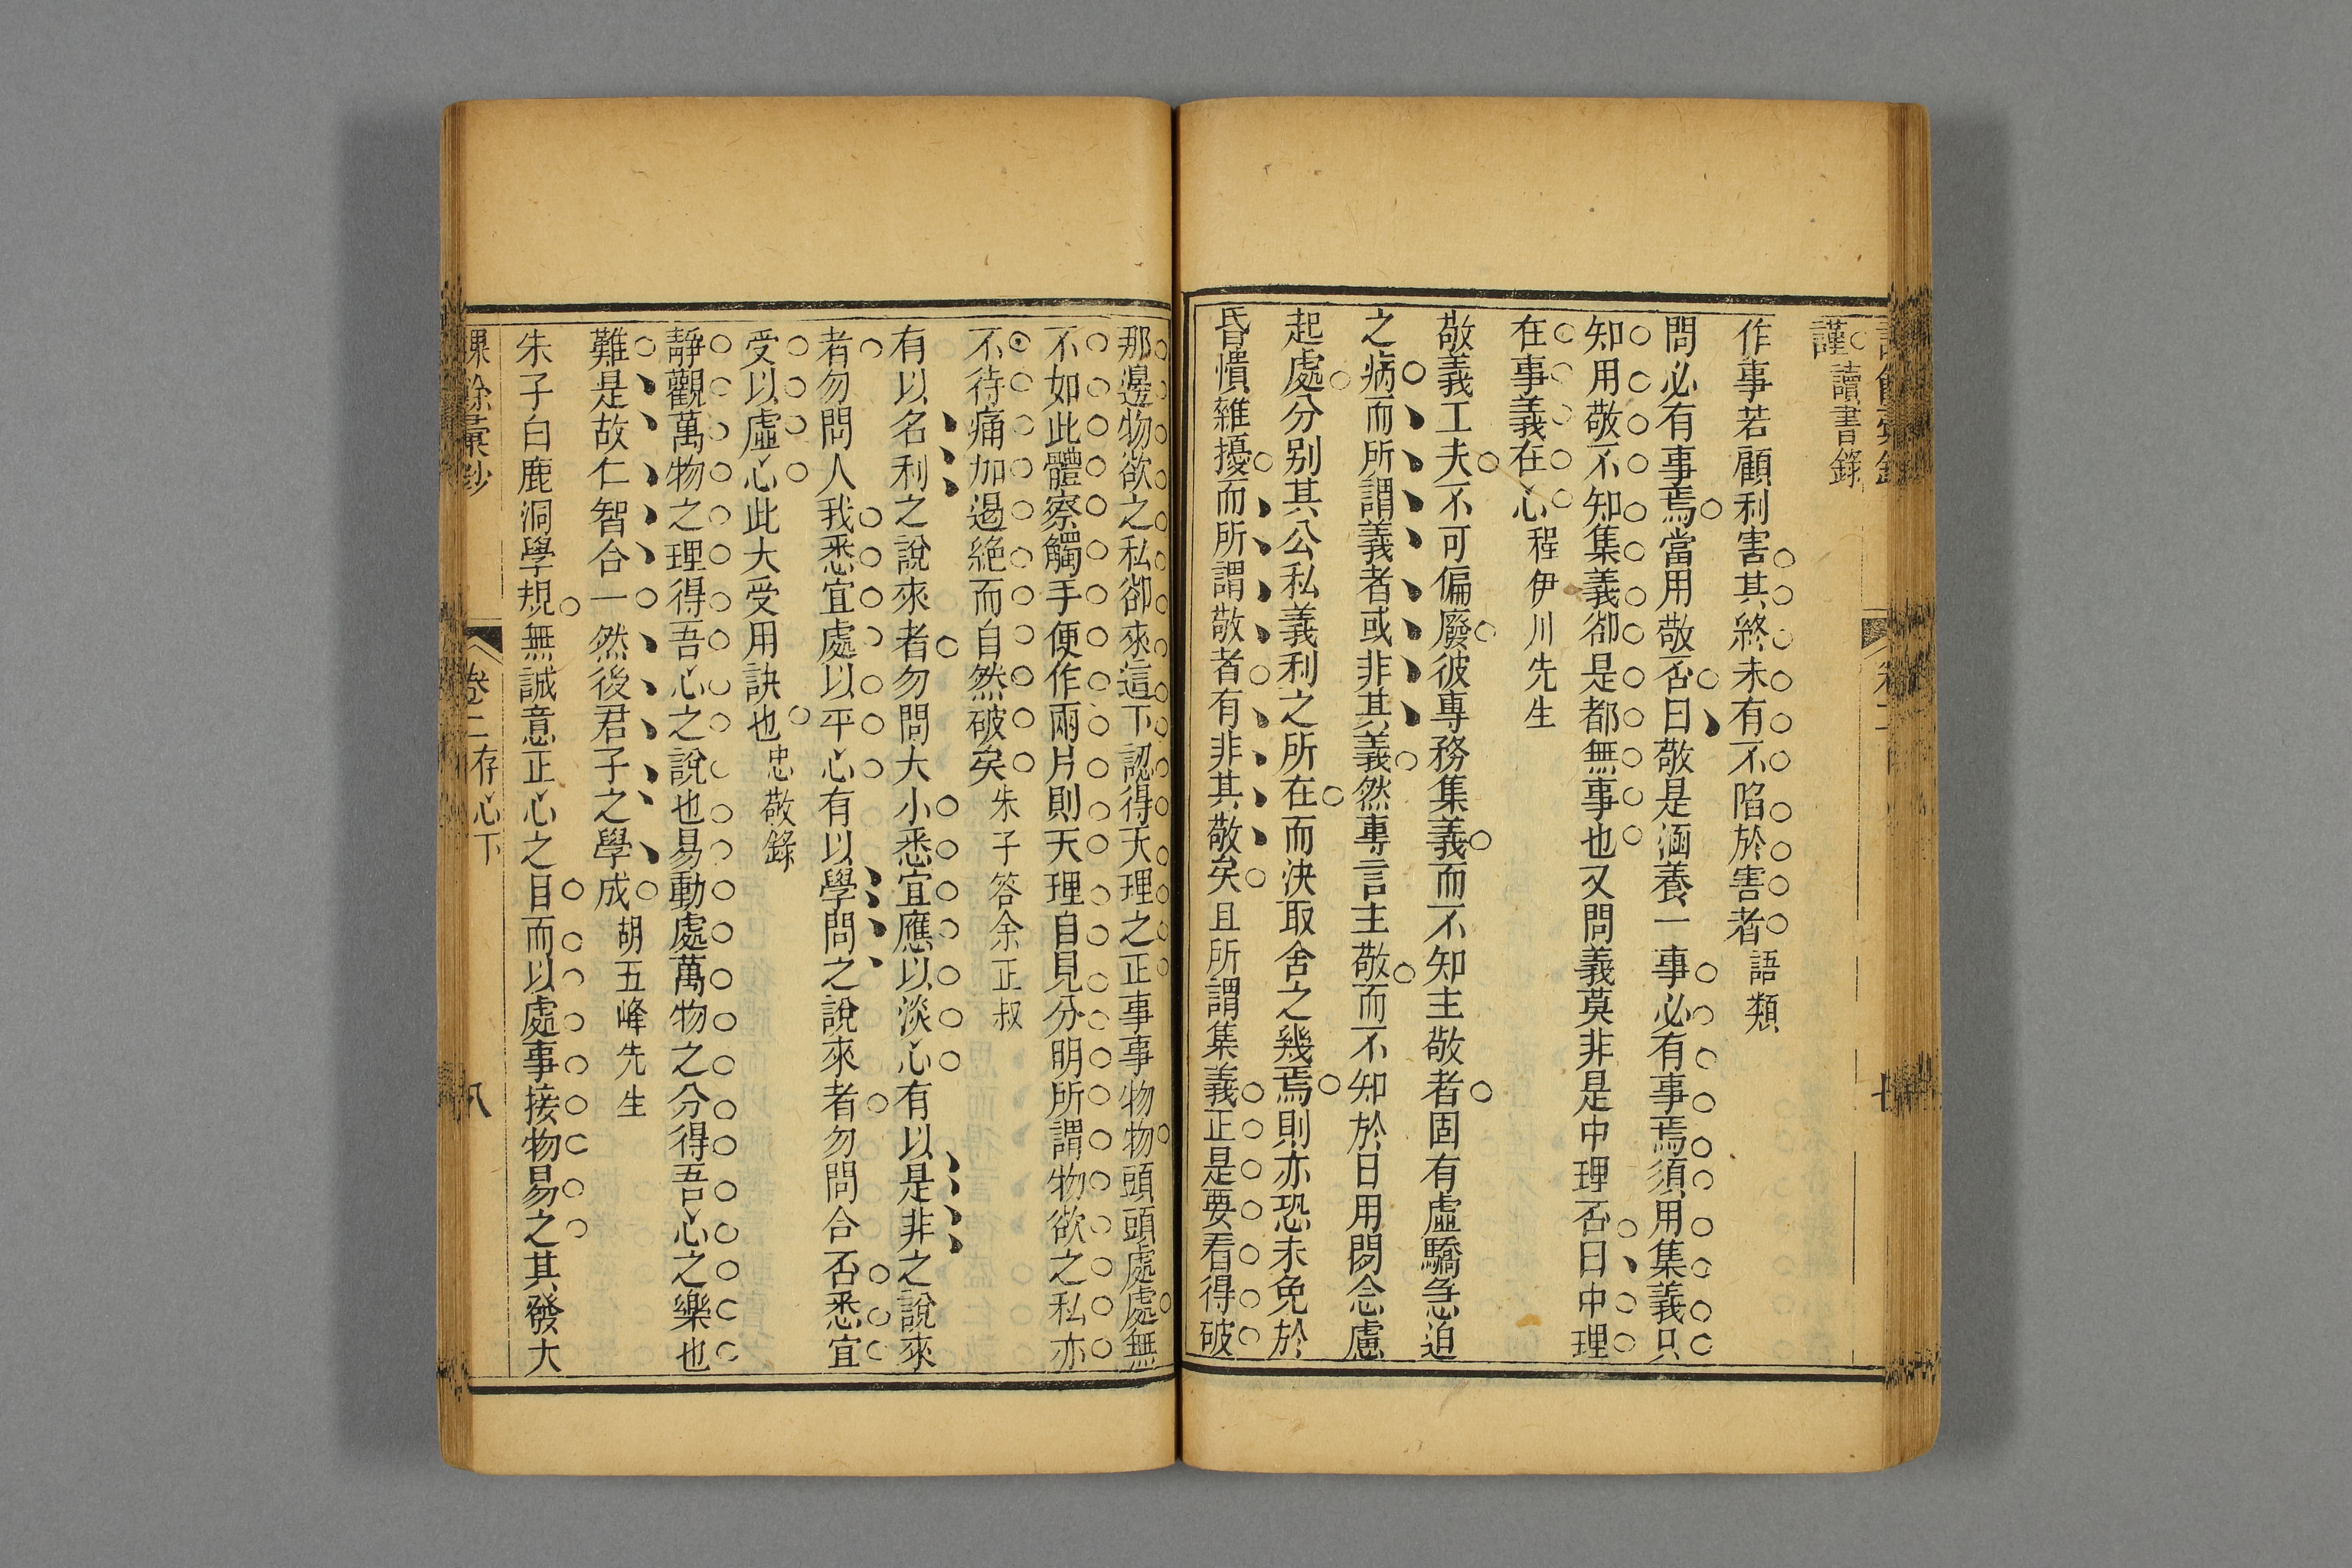 謹讀書錄
作事若顧利害其終未有不陷於害者語類
問必有事焉當用敬否曰敬是涵養一事必有事焉須用集義只
知用敬不知集義卻是都無事也又問義莫非是中理否曰中理
在事義在心程伊川先生
敬義工夫不可偏廢彼專務集義而不知主敬者固有虛驕急迫
之病而所謂義者或非其義然專言主敬而不知於日用閒念慮
起處分別其公私義利之所在而決取舍之幾焉則亦恐未免於
昏憒雜擾而所謂敬者有非其敬矣且所謂集義正是要看得破
那邊物欲之私卻來這下認得天理之正事事物物頭頭處處無
不如此體察觸手便作兩片則天理自見分明所謂物欲之私亦
不待痛加遏絕而自然破矣朱子答余正叔
有以名利之說來者勿問大小悉宜應以淡心有以是非之說來
者勿問人我悉宜處以平心有以學問之說來者勿問合否悉宜
受以虛心此大受用訣也忠敬錄
靜觀萬物之理得吾心之說也易動處萬物之分得吾心之樂也
難是故仁智合一然後君子之學成胡五峰先生
朱子白鹿洞學規無誠意正心之目而以處事接物易之其發大
課餘彙鈔 卷二 存心下 八